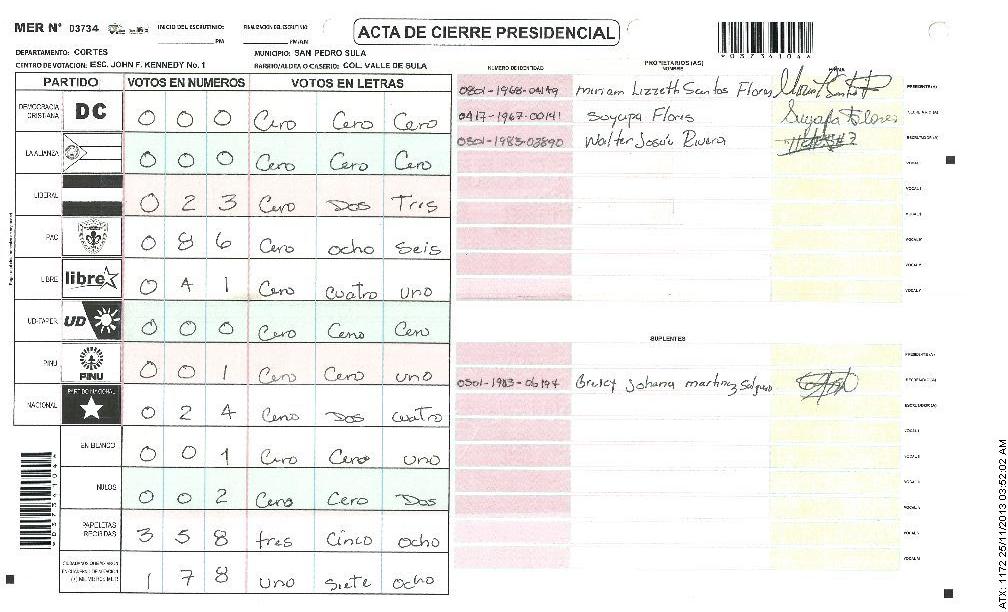 MER N° 03734 INICIO DEL ESCRUTINIO: PM FINALIZACION DEL ESCRUTINIO: PM/AM
ACTA DE CIERRE PRESIDENCIAL
DEPARTAMENTO: CORTES MUNICIPIO: SAN PEDRO SULA
CENTRO DE VOTACION: ESC. JOHN F. KENNEDY No. 1 BARRIO/ALDEA O CASERIO: COL. VALLE DE SULA
PARTIDO VOTOS EN NUMEROS VOTOS EN LETRAS
DEMOCRACIA CRISTIANA DC 0 0 0 Cero Cero Cero
LA ALIANZA 0 0 0 Cero Cero Cero
LIBERAL 0 2 3 Cero Dos Tres
PAC 0 8 6 Cero ocho seis
LIBRE libre 0 4 1 Cero cuatro uno
UD-FAPER UD 0 0 0 Cero Cero Cero
PINU PINU 0 0 1 Cero Cero uno
NACIONAL PARTIDO NACIONAL 0 2 4 Cero Dos cuatro
EN BLANCO 0 0 1 Cero Cero uno
NULOS 0 0 2 Cero Cero Dos
PAPELETAS RECIBIDAS 3 5 8 tres Cinco ocho
1 7 8 uno siete ocho
NUMERO DE IDENTIDAD PROPIETARIOS (AS) NOMBRE FIRMA
0801-1968-04149 Miriam Lizzeth Santos Flores PRESIDENTE(A)
0417-1967-00141 Suyapa Flores Suyapa Flores SECRETARIO(A)
0501-1985-03890 Walter Josué Rivera ESCRUTADOR(A)
VOCAL I
VOCAL II
VOCAL V
SUPLENTES
PRESIDENTE(A)
0501-1983-06194 Johana martinez SECRETARIO(A)
ESCRUTADOR (A)
VOCAL I
VOCAL II
ATX: 1172 25/11/2013 03:52:02 AM